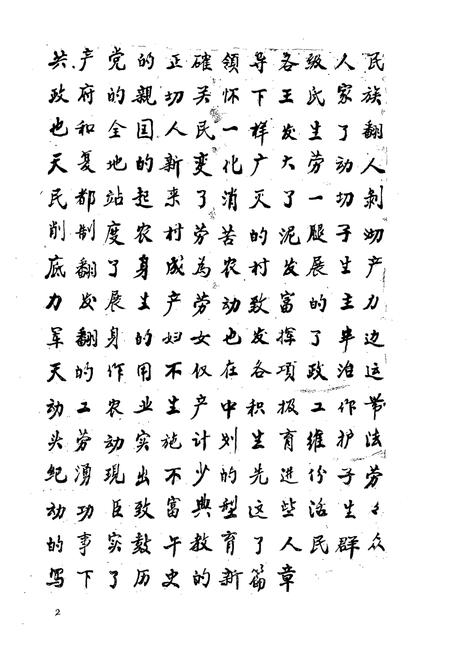 共产党的正確领导各级人民
政府的親切关怀下王氏家族
也和全国人民一样发生了翻
天复地的新变化广大劳动人
民都站起来了消灭了一切剥
削制度农村劳苦的泥腿子
底翻了身成為农村发展生产
力发展生产劳动致富的主力
军翻身的妇女也发挥了半边
天的作用不仅在各项政治运
动工农业生产中积极工作带
头劳动实施计划生育维护法
纪湧现出不少的先进份子劳
动功臣致富典型这些活生々
的事实鼓午教育了人民群众
写下了历史的新篇章
2